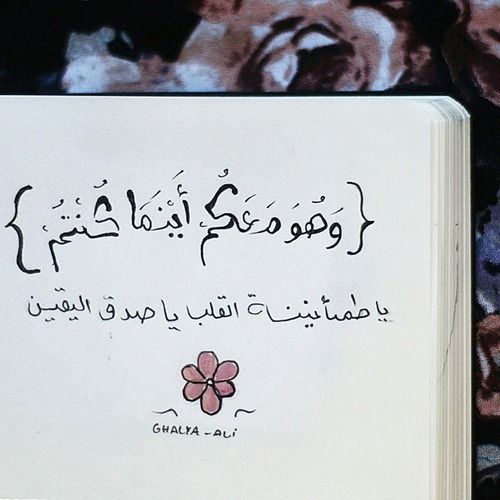 {وَهُوَ مَعَكُمْ أَيْنَمَا كُنْتُمْ}
يا طمأنينة القلب يا صدق اليقين
GHALYA - ALi